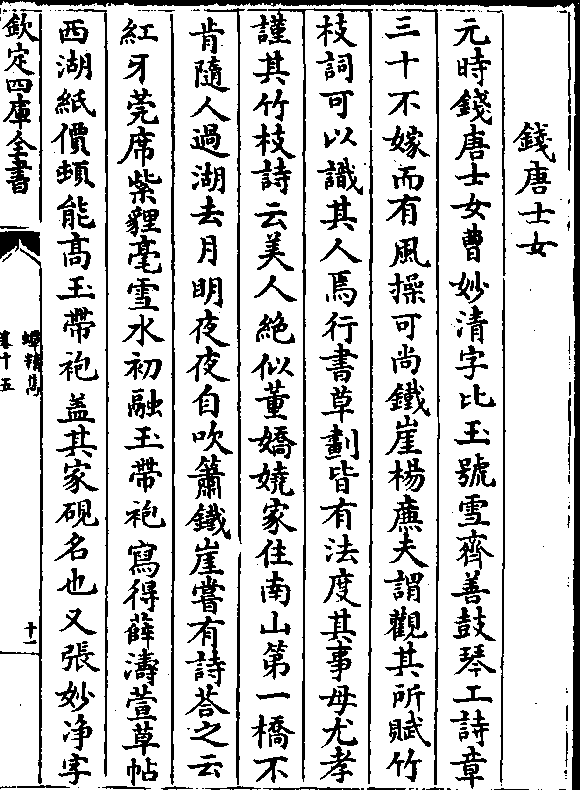 錢唐士女
元時錢唐士女曹妙清字比玉號雪齊善鼓琴工詩章
三十不嫁而有風操可尚鐵崖楊廉夫謂觀其所賦竹
枝詞可以識其人焉行書草劃皆有法度其事母尤孝
謹其竹枝詩云美人絶似董嬌嬈家住南山第一橋不
肯隨人過湖去月明夜夜自吹簫鐵崖嘗有詩荅之云
紅牙莞席紫貍毫雪水初融玉帶袍寫得薛濤萱草帖
西湖紙價頓能髙玉帶袍盖其家硯名也又張妙浄字
欽定四庫全書
蟫精雋
卷十五
十一